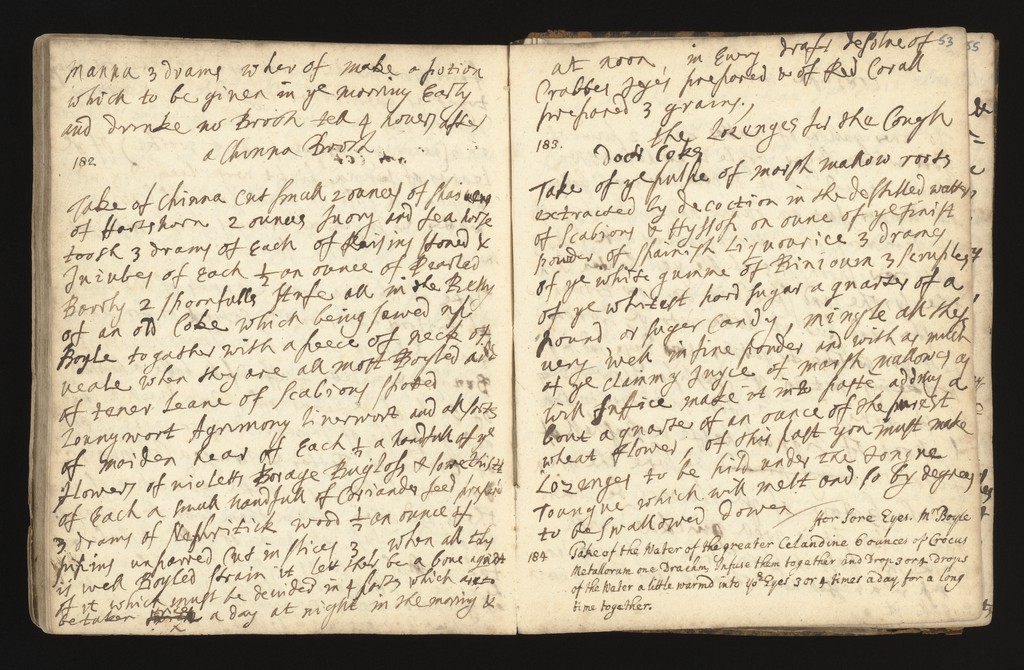 Manna 3 drams wher of make a potion
which to be given in ye morning Early
and drinke no Broth tell 4 howers after
182. a Chinna Broth
Take of Chinna Cut small 2 ounces of shavings
of Hartshorn 2 ounces Ivory and sea horse
tooth 3 drams of Each of Raisins stoned &
Jujubes of Each ½ an ounce of Pearled
Barly 2 spoonfulls Infuse all in the Belly
of an old Coke which being sewed up
Boyle togather with a peece of neck of
veale when they are all most Boyled add
of tener leave of Scabious spoted
Lonnywort Agrimony liverwort and all sorts
of maiden hear of Each ½ a handfull of ye
flowers of violetts Borage Bugloss &
of Each a small handfull of Coriander seed prepared
3 drams of Nefhritick wood ½ an ounce of
pipins unparred Cut in slices 3 when all this
is well Boyled strain it let ther be a bone
of it which must be decided in 4 parts which
be taken a day at night in the morning &
53 55
at noon, in Every draft desolve of
Crabbes Jeyes prepared & of Red Corall
prepared 3 grains,
183. the Lozenges for the Cough
Doctr Coks
Take of ye pulpe of marsh mallow roots
extracted by decoction in the destilled watters
of Scabious & Hyssop on ounce of ye finist
powder of spainish Liquourice 3 drames
of ye white gumme of Biniouin 3 scruples
of ye whitest hard sugar a quarter of a
pound or suger Candy, mingle all thes
very well in fine powder and with as much
of ye clammy Juyce of marsh mallowes as
will suffice make it into paste adding a
bout a quarter of an ounce off the purest
wheat flower of this past you must make
Lozenges to be hild under the tongue
Toungue which will melt and so by degrees
to be swallowed downe
For Sore Eyes. Mr Boyle
184 Take of the Water of the greater Celandine 6 ounces of Crocus
Metallorum one Drachm, Infuse them together and Drop 3 or 4 drops
of the Water a little warmd into ye Eyes 3 or 4 times a day, for a long
time together.